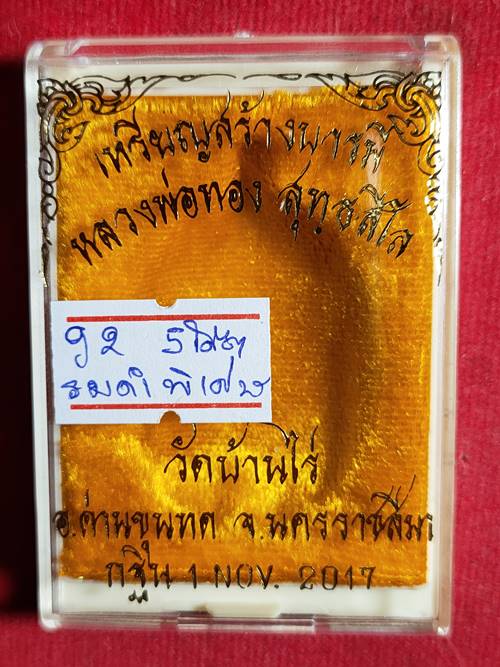 เหรียญสร้างบารมี
หลวงพ่อทอง สุทฺธสีโล
92 5โค๊ต
รมดำพิเศษ
วัดบ้านไร่
อ.ด่านขุนทด จ.นครราชสีมา
กฐิน 1 NOV. 2017